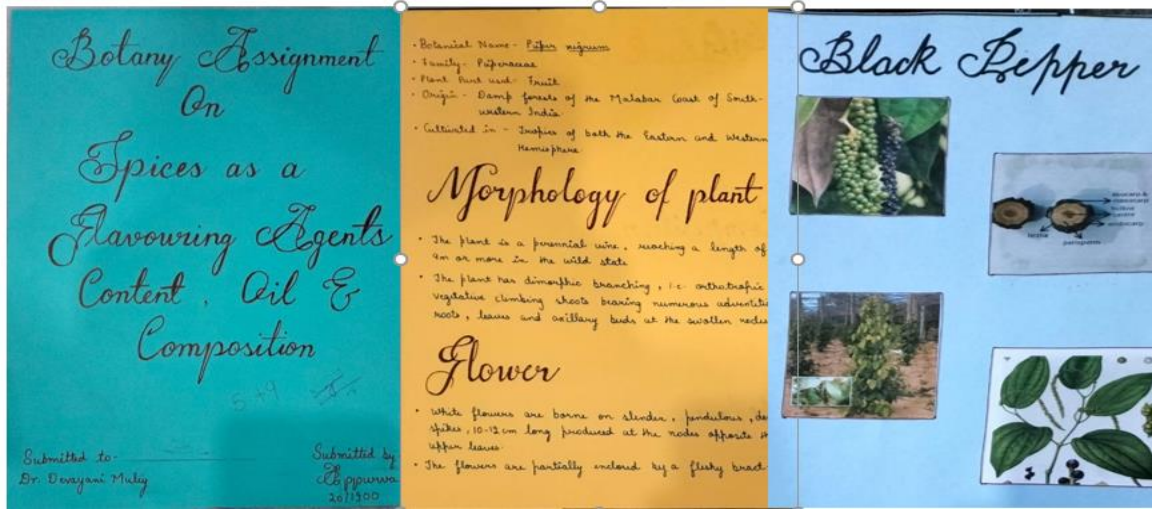 Botany Assignment
On
Spices as a
Flavouring Agents
Content, Oil &
Composition
5+9
Submitted to-
Dr. Devayani Muley
Submitted by
Appurva
20/1900
• Botanical Name - Piper nigrum
• Family - Piperaceae
• Plant Part used - Fruit
• Origin - Damp forests of the Malabar Coast of South-
western India
• Cultivated in - Tropics of both the Eastern and Western
Hemisphere
Morphology of plant
• The plant is a perennial vine, reaching a length of
or more in the wild state
• The plant has dimorphic branching, i.e. orthotropic
vegetative climbing shoots bearing numerous
roots, leaves and axillary buds at the swollen nodes
Flower
• White flowers are borne on slender, pendulous,
spikes, 10-12 cm long produced at the nodes opposite
upper leaves
• The flowers are partially enclosed by a fleshy bract
Black Pepper
mesocarp
endocarp
testa
perisperm